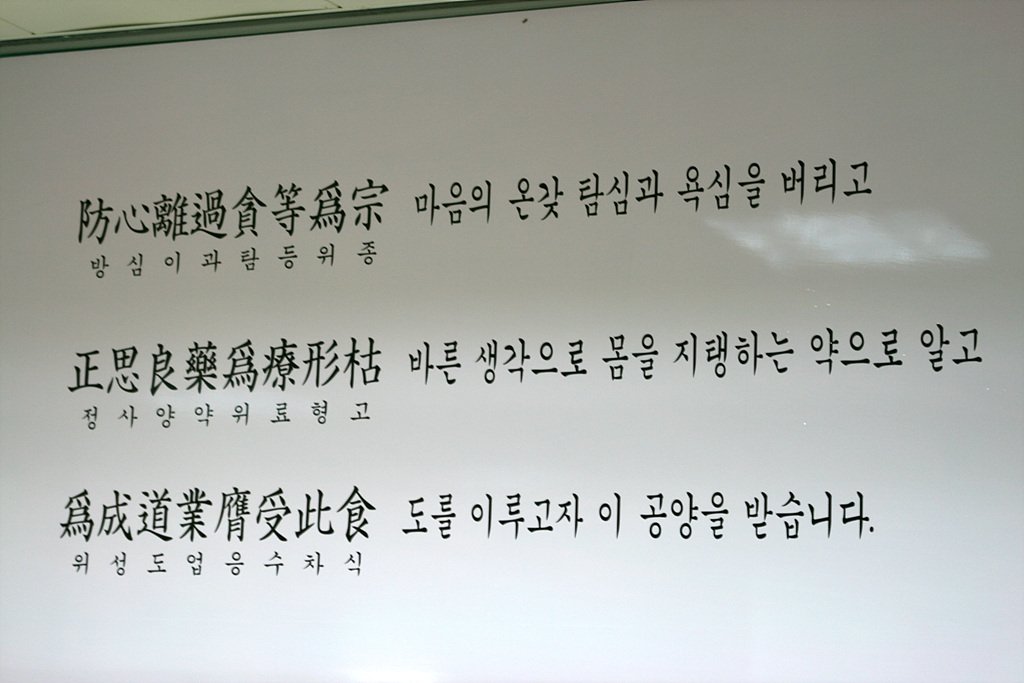 防心離過貪等爲宗 마음의 온갖 탐심과 욕심을 버리고
방심이과탐등위종
正思良藥爲療形枯 바른 생각으로 몸을 지탱하는 약으로 알고
정사양약위료형고
爲成道業膺受此食 도를 이루고자 이 공양을 받습니다.
위성도업응수차식